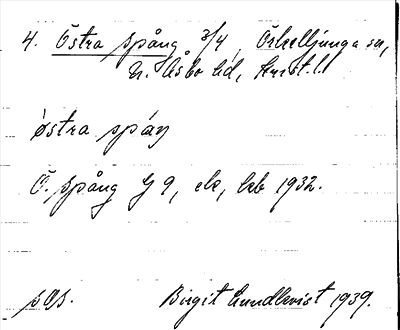 4. Östra Spång 3/4, Örkelljunga sn,
N. Åsbo hd, Krist. l.
östra spáŋ
Ö. Spång G 9, ek, kb 1932.
sds.
Birgit Lundkvist 1939.